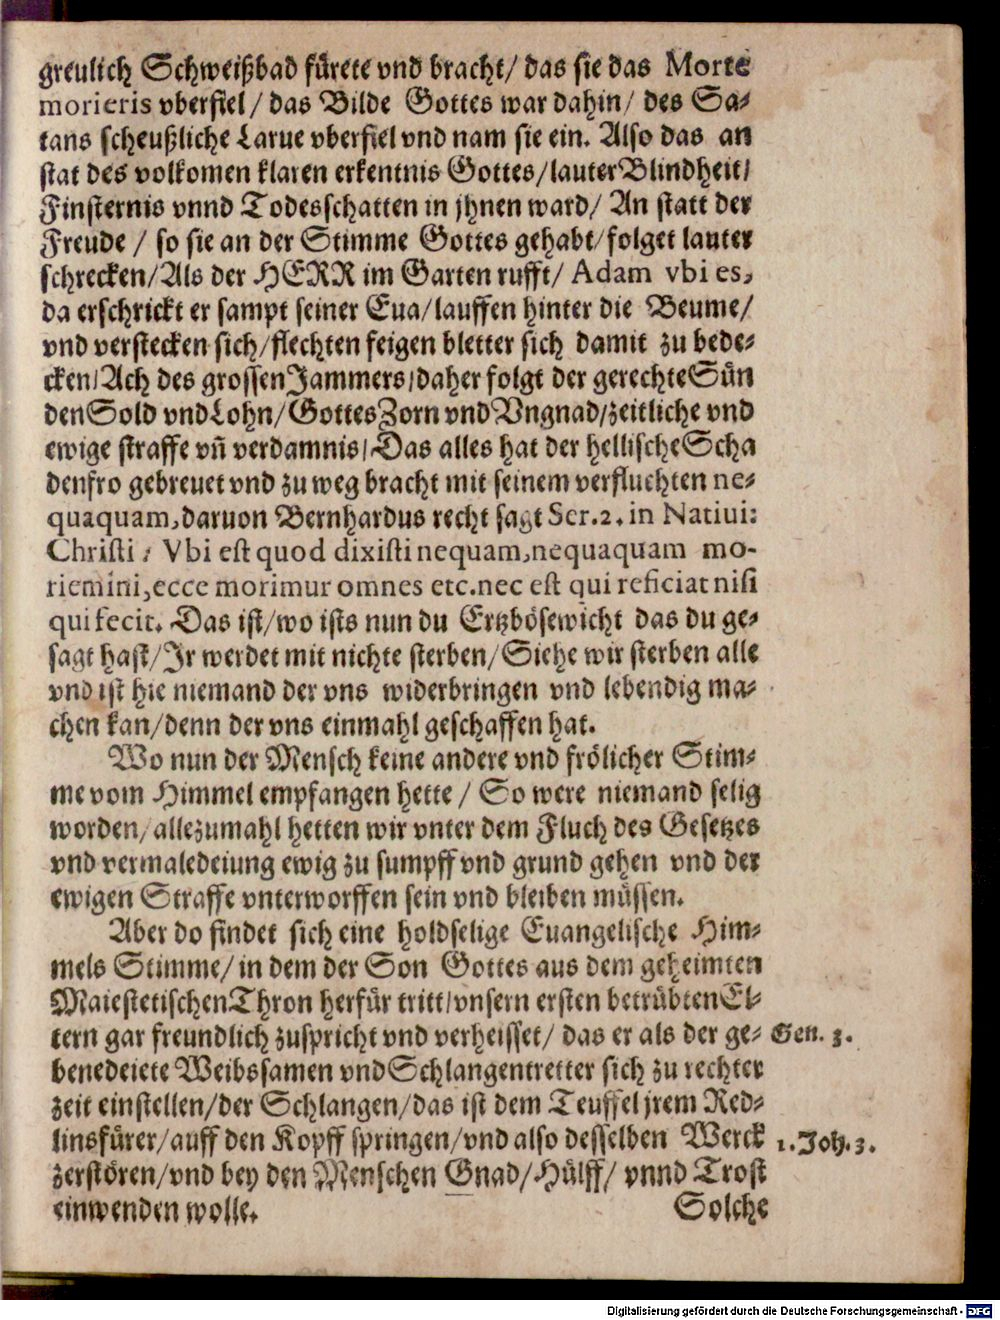 greulich Schweißbad fürete vnd bracht/ das sie das Morte
morieris vberfiel/ das Bilde Gottes war dahin/ des Sa-
tans scheußliche Larue vberfiel vnd nam sie ein. Also das an
stat des volkomen klaren erkentnis Gottes/ lauter Blindheit/
Finsternis vnnd Todesschatten in jhnen ward/ An statt der
Freude/ so sie an der Stimme Gottes gehabt/ folget lauter
schrecken/ Als der HERR im Garten rufft/ Adam vbi es,
da erschrickt er sampt seiner Eua/ lauffen hinter die Beume/
vnd verstecken sich/ flechten feigen bletter sich damit zu bede-
cken/ Ach des grossen Jammers/ daher folgt der gerechte Sün
den Sold vnd Lohn/ Gottes Zorn vnd Vngnad/ zeitliche vnd
ewige straffe vñ verdamnis/ Das alles hat der hellische Scha
denfro gebreuet vnd zu weg bracht mit seinem verfluchten ne-
quaquam, daruon Bernhardus recht sagt Ser. 2. in Natiui:
Christi: Vbi est quod dixisti nequam, nequaquam mo-
riemini, ecce morimur omnes etc. nec est qui reficiat nisi
qui fecit. Das ist/ wo ists nun du Ertzbösewicht das du ge-
sagt hast/ Jr werdet mit nichte sterben/ Siehe wir sterben alle
vnd ist hie niemand der vns widerbringen vnd lebendig ma-
chen kan/ denn der vns einmahl geschaffen hat.
Wo nun der Mensch keine andere vnd frölicher Stim-
me vom Himmel empfangen hette/ So were niemand selig
worden/ allezumahl hetten wir vnter dem Fluch des Gesetzes
vnd vermaledeiung ewig zu sumpff vnd grund gehen vnd der
ewigen Straffe vnterworffen sein vnd bleiben müssen.
Aber do findet sich eine holdselige Euangelische Him-
mels Stimme/ in dem der Son Gottes aus dem geheimten
Maiestetischen Thron herfür tritt/ vnsern ersten betrübten El-
tern gar freundlich zuspricht vnd verheisset/ das er als der ge- Gen. 3.
benedeiete Weibssamen vnd Schlangentretter sich zu rechter
zeit einstellen/ der Schlangen/ das ist dem Teuffel jrem Red-
linsfürer/ auff den Kopff springen/ vnd also desselben Werck 1. Joh. 3.
zerstören/ vnd bey den Menschen Gnad/ Hülff/ vnnd Trost
einwenden wolle. Solche
Digitalisierung gefördert durch die Deutsche Forschungsgemeinschaft - DFG